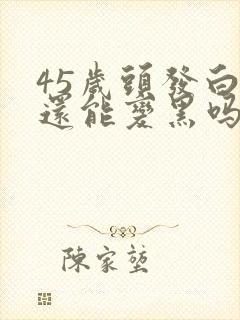 45歲頭發白
還能變黑嗎
陳家堃